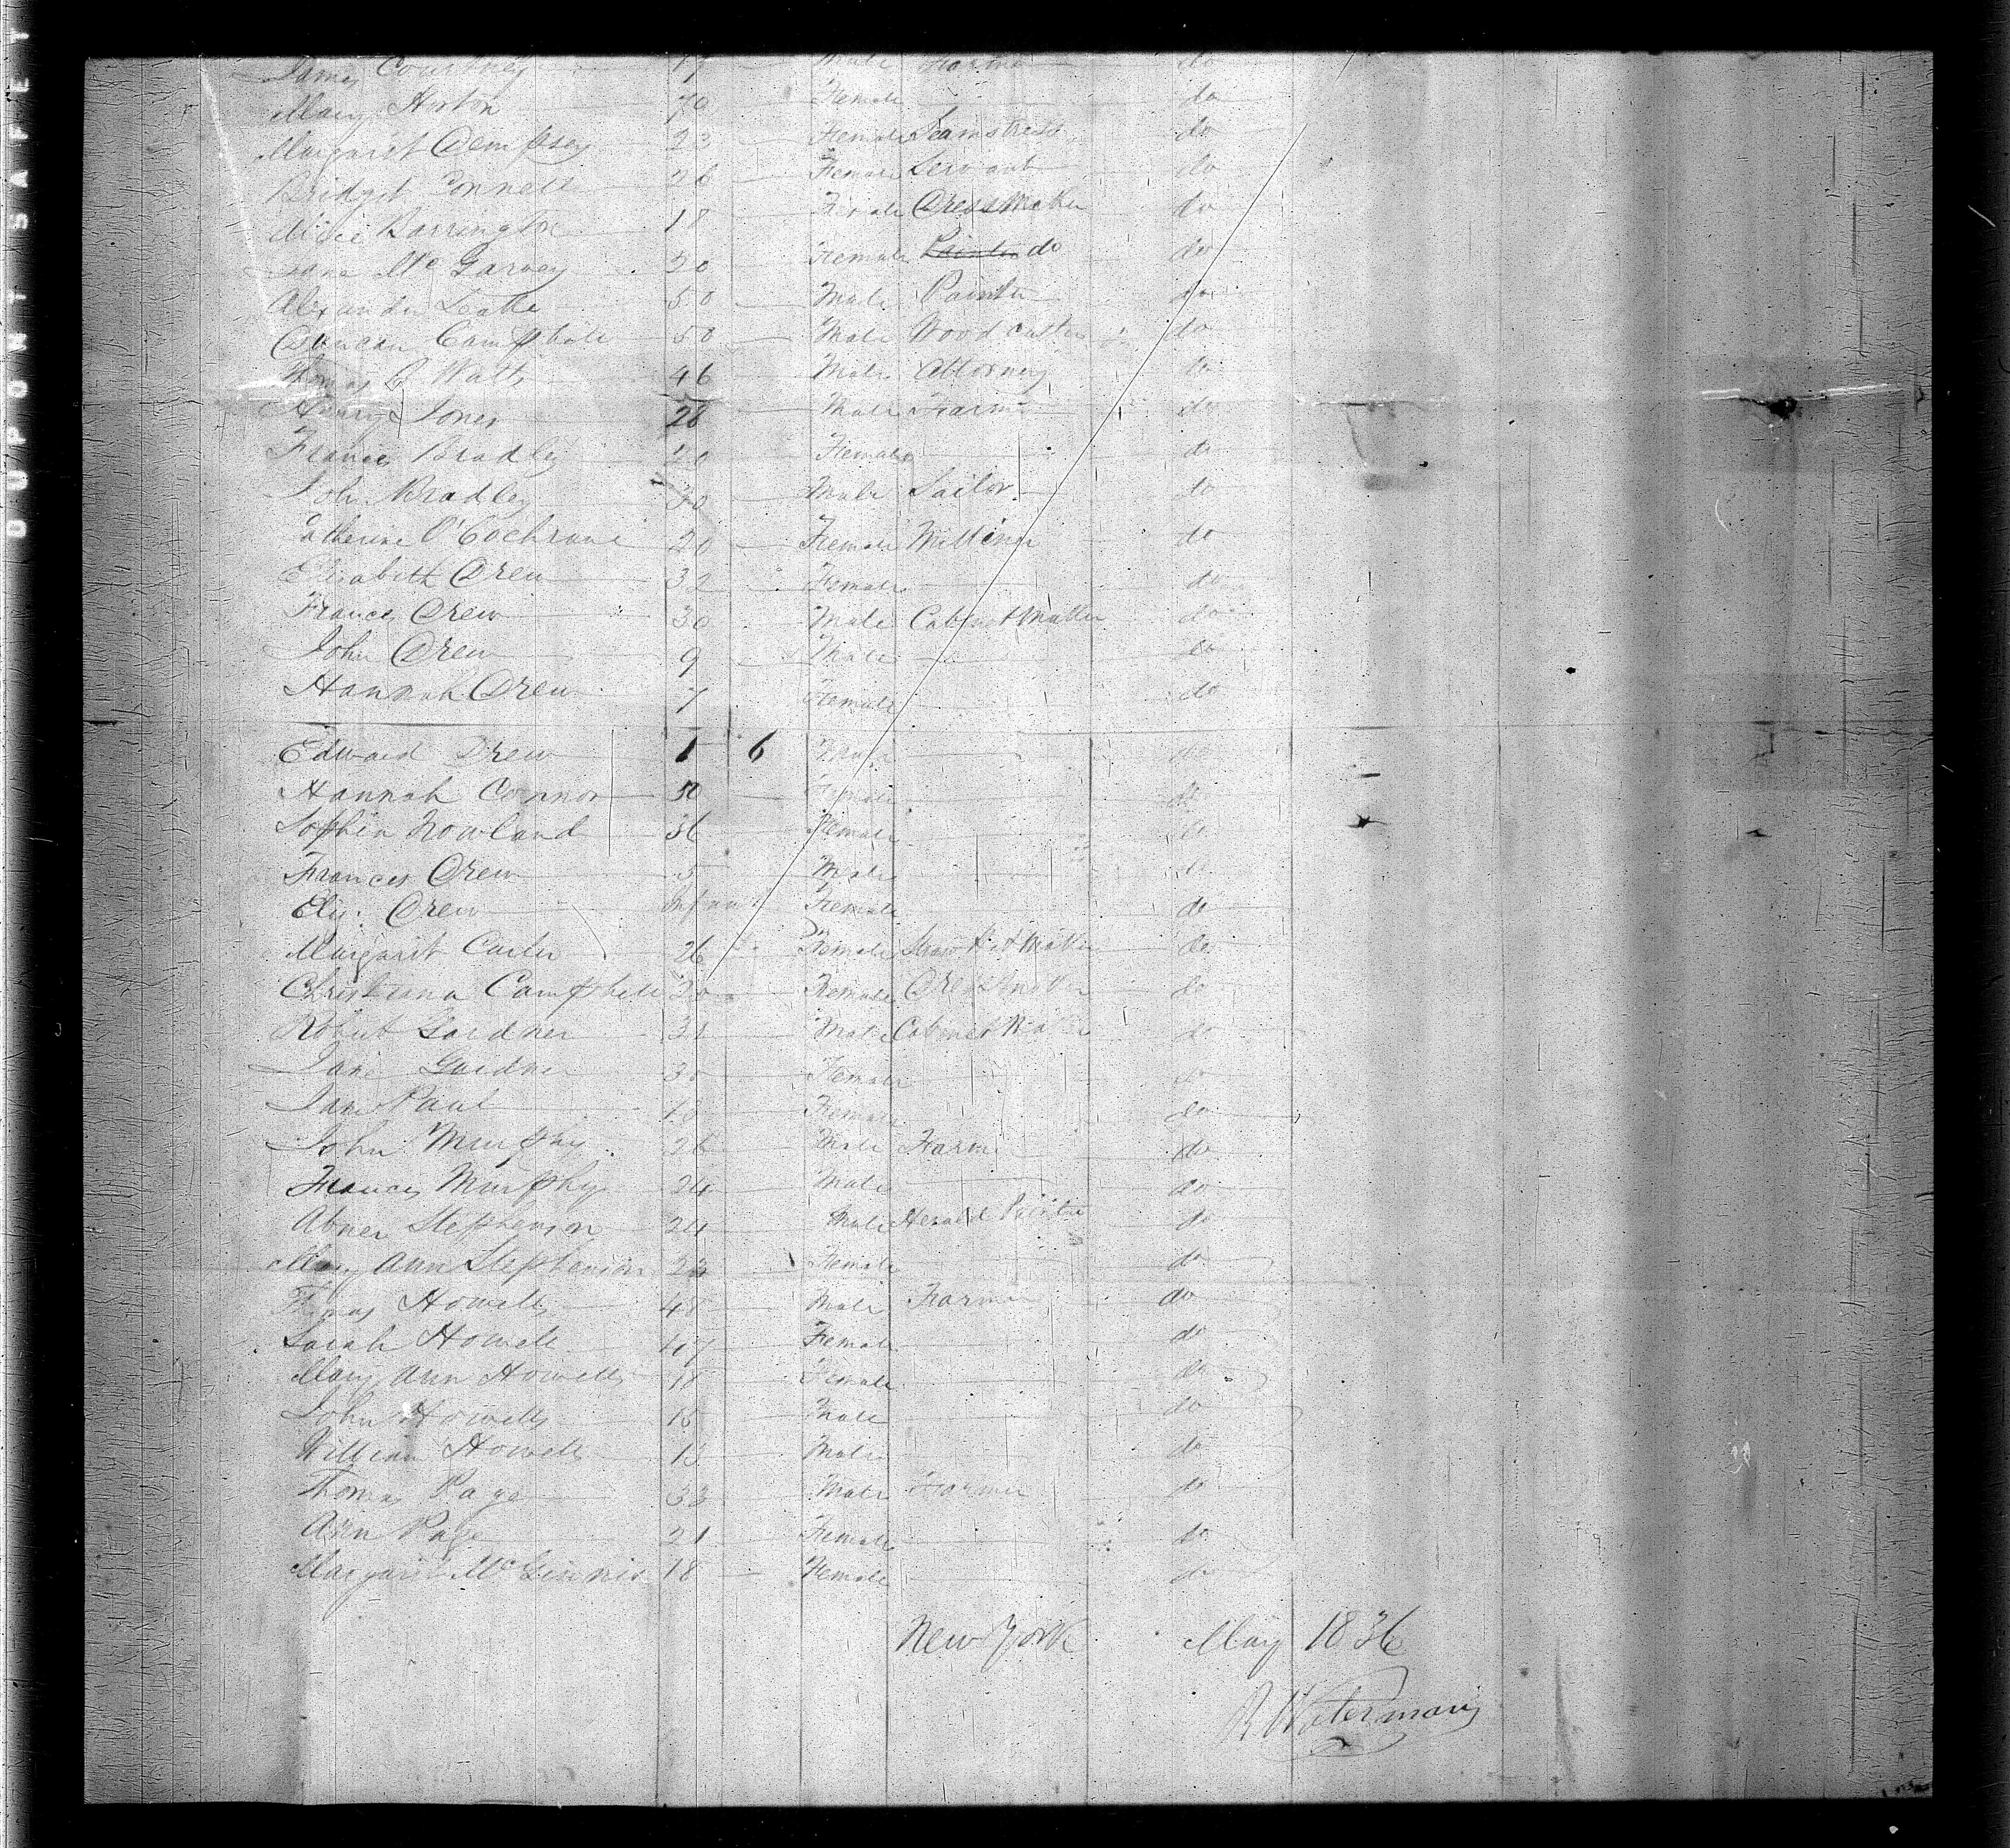 James Courtney Male Farmer do
Mary Horton 70 Female do
Margaret Dempsey 23 Female Seamstress do
Bridget Connell 26 Female Servant do
Alice Barrington 18 Female Dress Maker do
Jane Mc Garvey 20 Female Painter do do
Alexander Leatle 50 Male Painter do
Duncan Campbell 50 Male Wood cutter do
Thomas Watts 46 Male Attorney do
Henry Jones 28 Male Farmer do
Frances Bradley 20 Female do
John Bradley 30 Male Sailor do
Catherine O'Cochrane 20 Female Milliner do
Elizabeth Drew 32 Female do
Frances Drew 30 Male Cabinet Maker do
John Drew 9 Male do
Hannah Drew 7 Female do
Edward Drew 1 6 Male do
Hannah Connor 50 Female do
Sophia Nowland 36 Female do
Frances Drew 5 Male do
Eliz: Drew Infant Female do
Margaret Carter 26 Female Straw Hat Maker do
Christiana Campbell 20 Female Dress Maker do
Robert Gardner 31 Male Cabinet Maker do
Jane Gardner 30 Female do
Jane Paul 18 Female do
John Murphy 26 Male Farmer do
Frances Murphy 24 Male do
Abner Stephenson 24 Male Herald Painter do
Mary Ann Stephenson 23 Female do
Thomas Howells 48 Male Farmer do
Sarah Howells 47 Female do
Mary Ann Howells 18 Female do
John Howells 15 Male do
William Howells 13 Male do
Thomas Page 33 Male Farmer do
Ann Page 21 Female do
Margaret Mc Ginnis 18 Female do
New York May 1836
R Waterman
DUPONT SAFETY